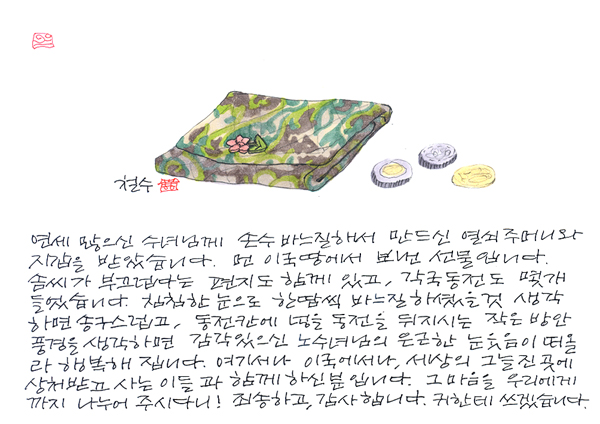 철수
연세 많으신 수녀님께 손수 바느질해서 만드신 열쇠주머니와
지갑을 받았습니다. 먼 이국땅에서 보내신 선물입니다.
솜씨가 부끄럽다는 편지도 함께 있고, 각국동전도 몇개
들었습니다. 침침한 눈으로 한땀씩 바느질하셨을것 생각
하면 송구스럽고, 동전칸에 넣을 동전을 뒤지시는 작은 방안
풍경을 생각하면 감각있으신 노수녀님의 은근한 눈웃음이 떠올
라 행복해 집니다. 여기서나 이국에서나, 세상의 그늘진 곳에
상처받고 사는 이들과 함께하신 분입니다. 그 마음을 우리에게
까지 나누어 주시다니! 죄송하고, 감사합니다. 귀한데 쓰겠습니다.